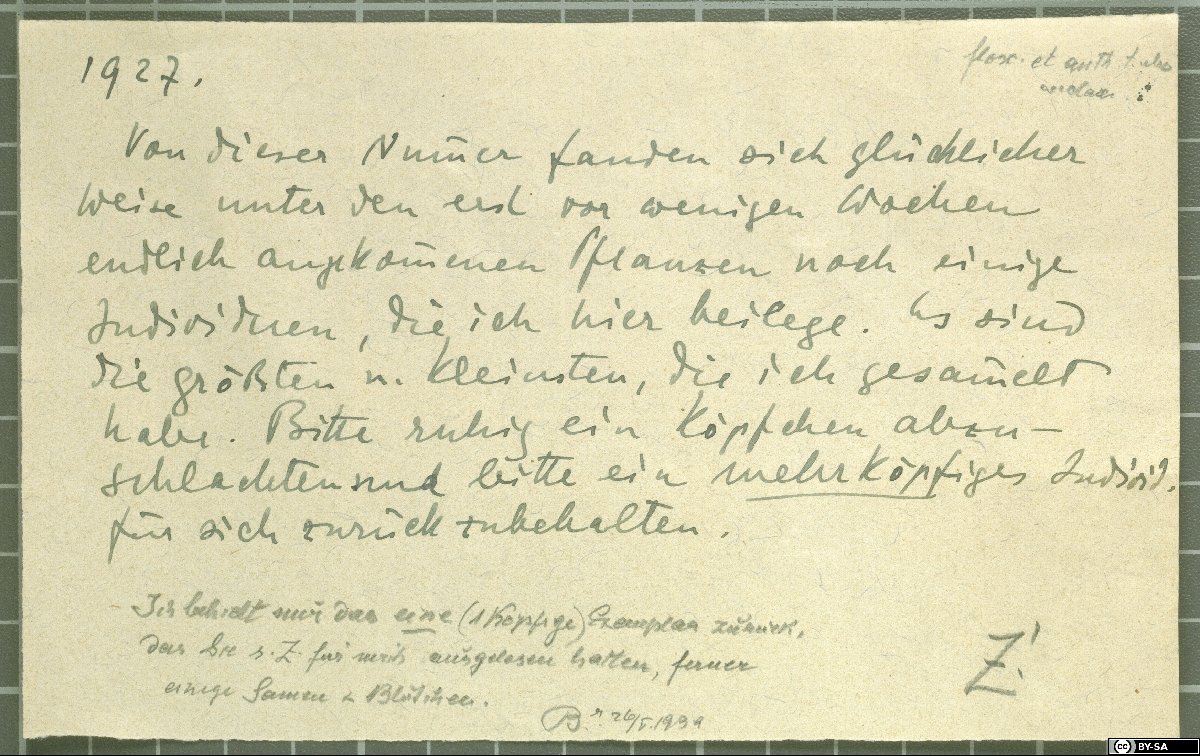 flor. et anth
1927.
Von dieser Num̅er fanden sich glücklicher
Weise unter den erst vor wenigen Wochen
endlich angekom̅enen Pflanzen noch einige
Individuen, die ich hier beilege. Es sind
die größten u. kleinsten, die ich gesam̅elt
habe. Bitte ruhig ein Köpfchen abzu-
schlachten und bitte ein mehrköpfiges Individ.
für sich zurückzubehalten.
Ich behielt mir das eine (1 köpfige) Exemplar zurück,
das Sie s. Z. für mich ausgelesen hatten, ferner
einige Samen u Blütchen.
Z!
BY-SA